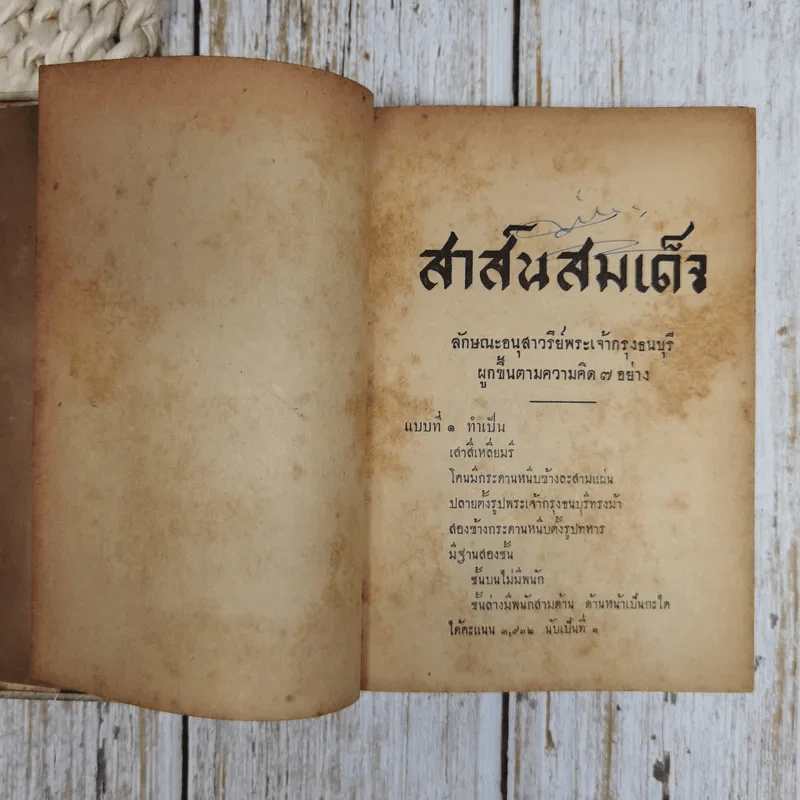 สาส์นสมเด็จ
ลักษณะอนุสาวรีย์พระเจ้ากรุงธนบุรี
ผูกขึ้นตามความคิด ๗ อย่าง
แบบที่ ๑ ทำเป็น
เสาสี่เหลี่ยมรี
โคนมีกระดานหนีบข้างละสามแผ่น
ปลายตั้งรูปพระเจ้ากรุงธนบุรีทรงม้า
สองข้างกระดานหนีบตั้งรูปทหาร
มีฐานสองชั้น
ชั้นบนไม่มีพนัก
ชั้นล่างมีพนักสามด้าน ด้านหน้าเป็นกะได
ได้คะแนน ๓,๙๓๒ นับเป็นที่ ๑